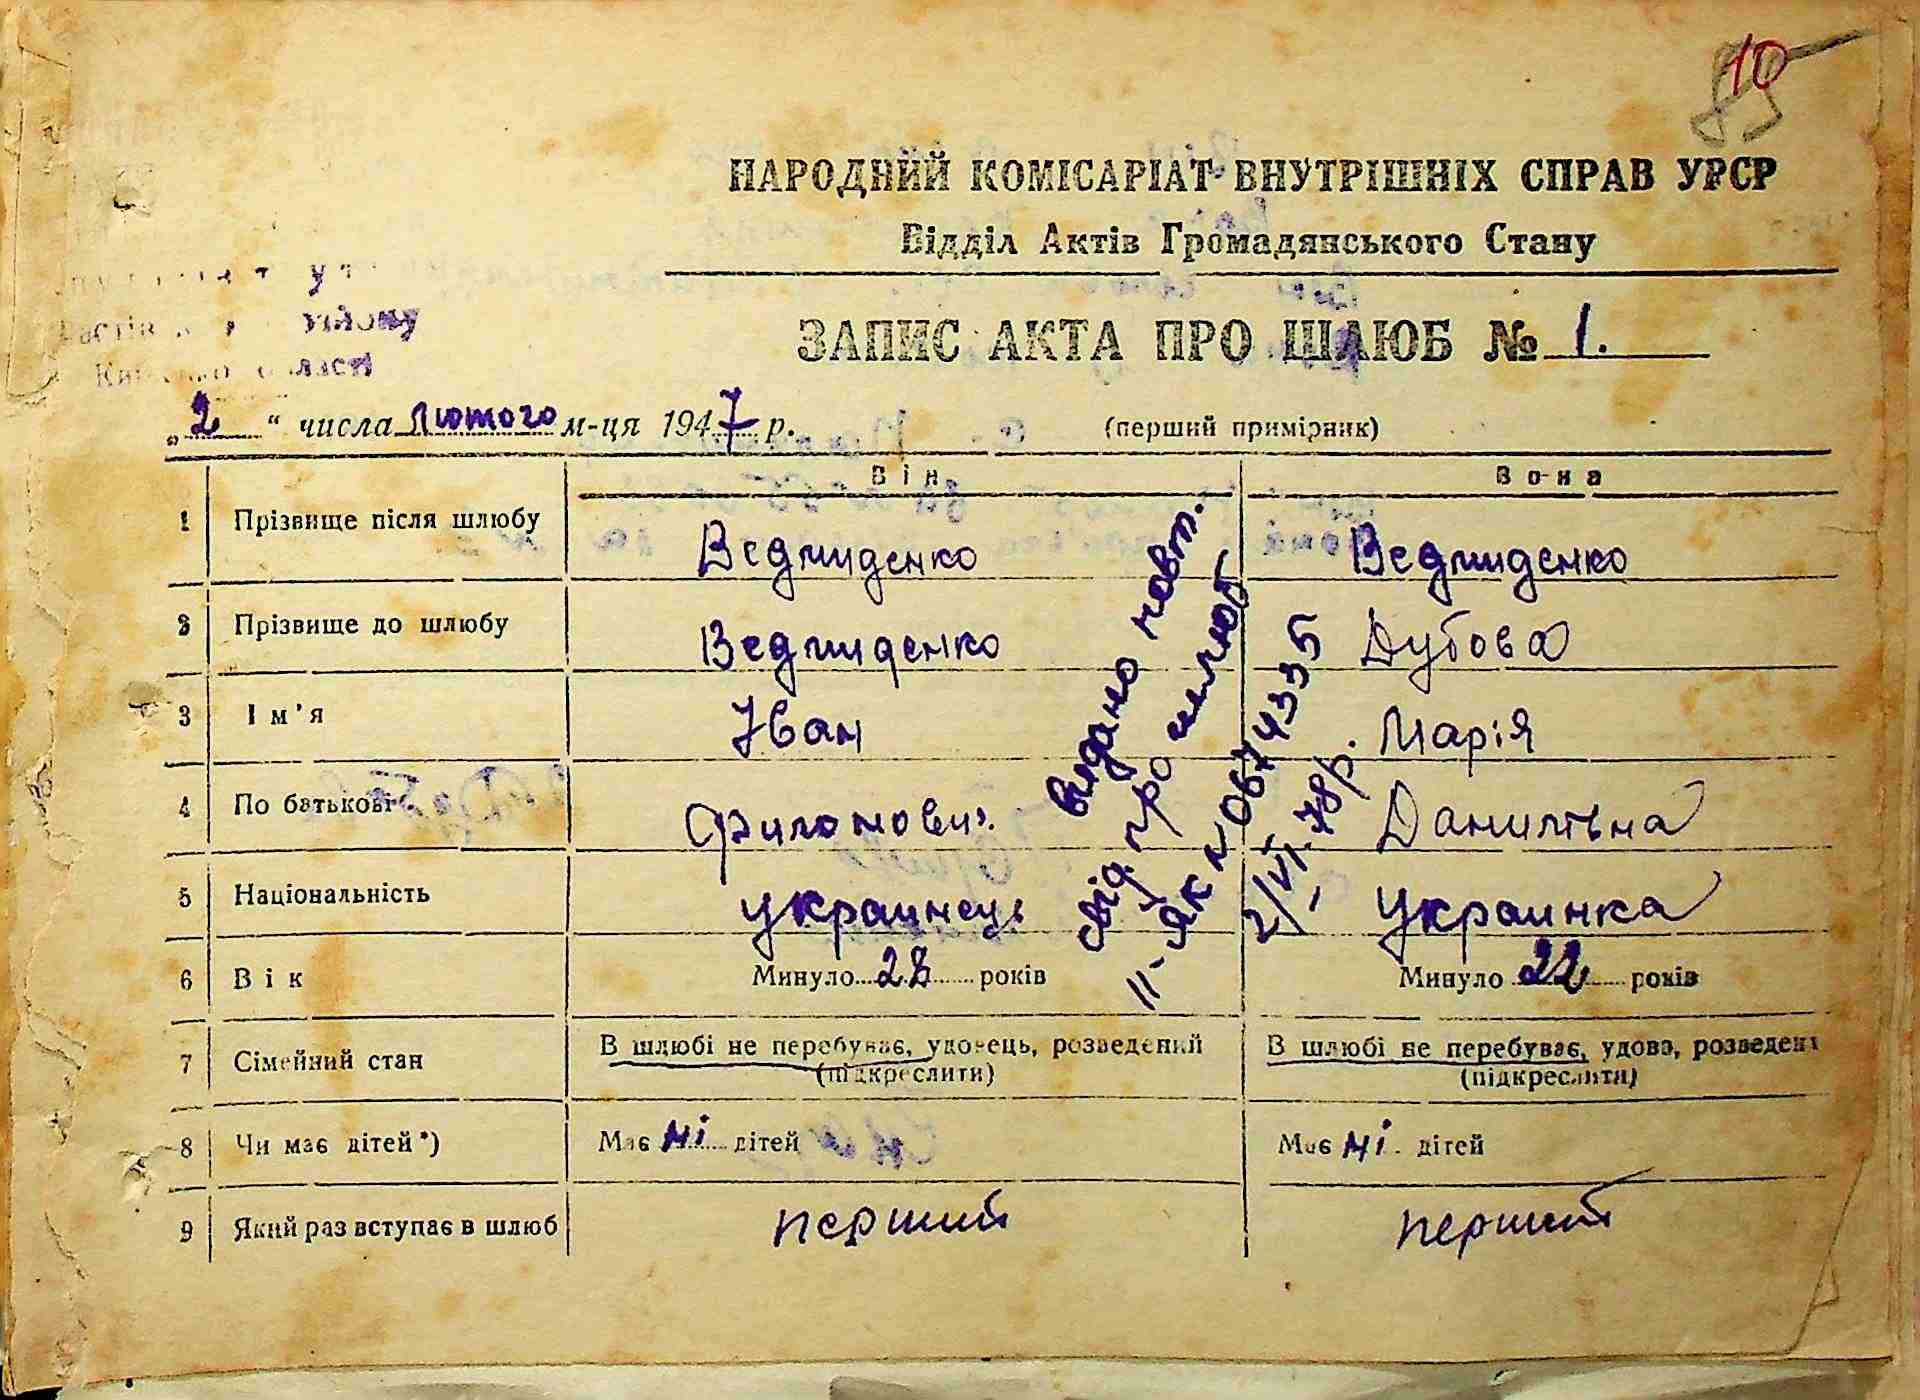 10
НАРОДНИЙ КОМІСАРІАТ ВНУТРІШНІХ СПРАВ УРСР
Відділ Актів Громадянського Стану
області
ЗАПИС АКТА ПРО ШЛЮБ № 1.
„2“ числа Лютого м-ця 1947 р. (перший примірник)
Він Вона
1 Прізвище після шлюбу Ведмиденко Ведмиденко
2 Прізвище до шлюбу Ведмиденко Дубова
3 Ім'я Іван Марія
4 По батькові Филонович Данилівна
5 Національність украинець украинка
6 Вік Минуло 28 років Минуло 22 років
7 Сімейний стан В шлюбі не перебуває, удовець, розведений (підкреслити) В шлюбі не перебуває, удова, розведена (підкреслити)
8 Чи має дітей*) Має ні дітей Має ні дітей
9 Який раз вступає в шлюб перший перший
видано повт.
свід. про шлюб
II-ЯК № 0674335
2/VI-78р.